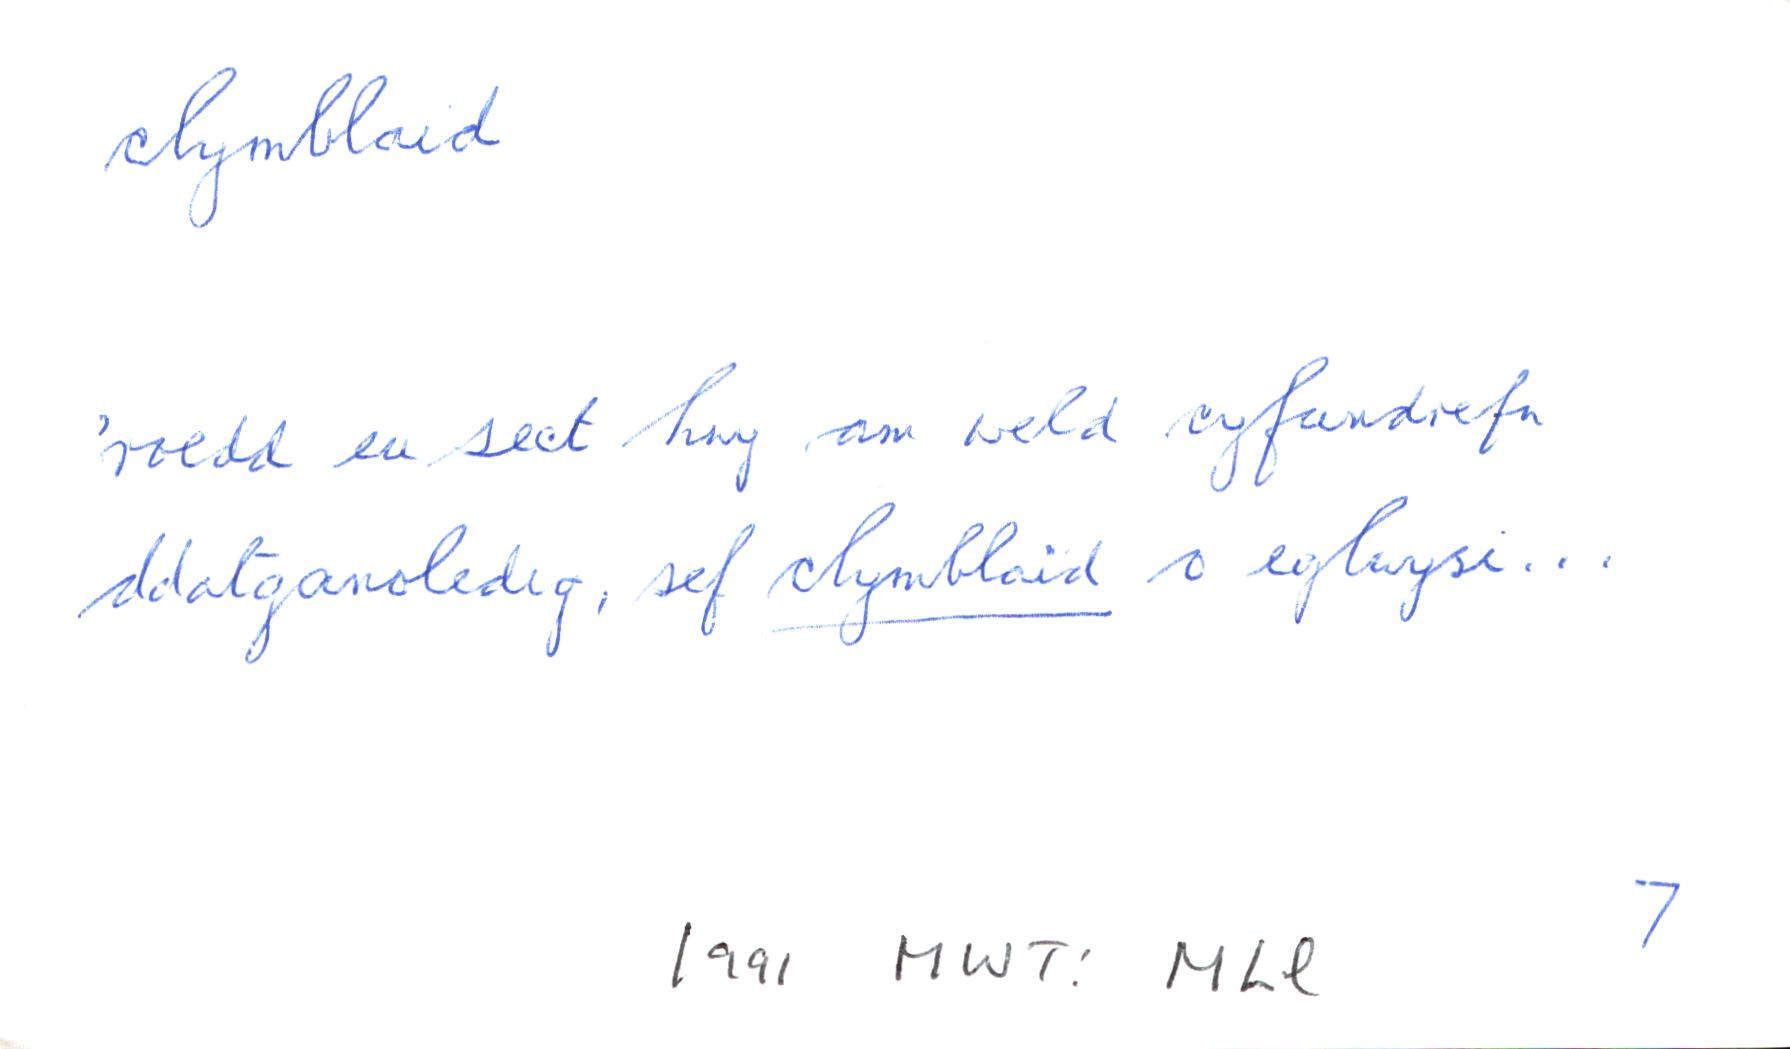 clymblaid
'roedd eu sect hwy am weld cyfundrefn
ddatganoledig, sef clymblaid o eglwysi...
7
1991 MWT: MLl